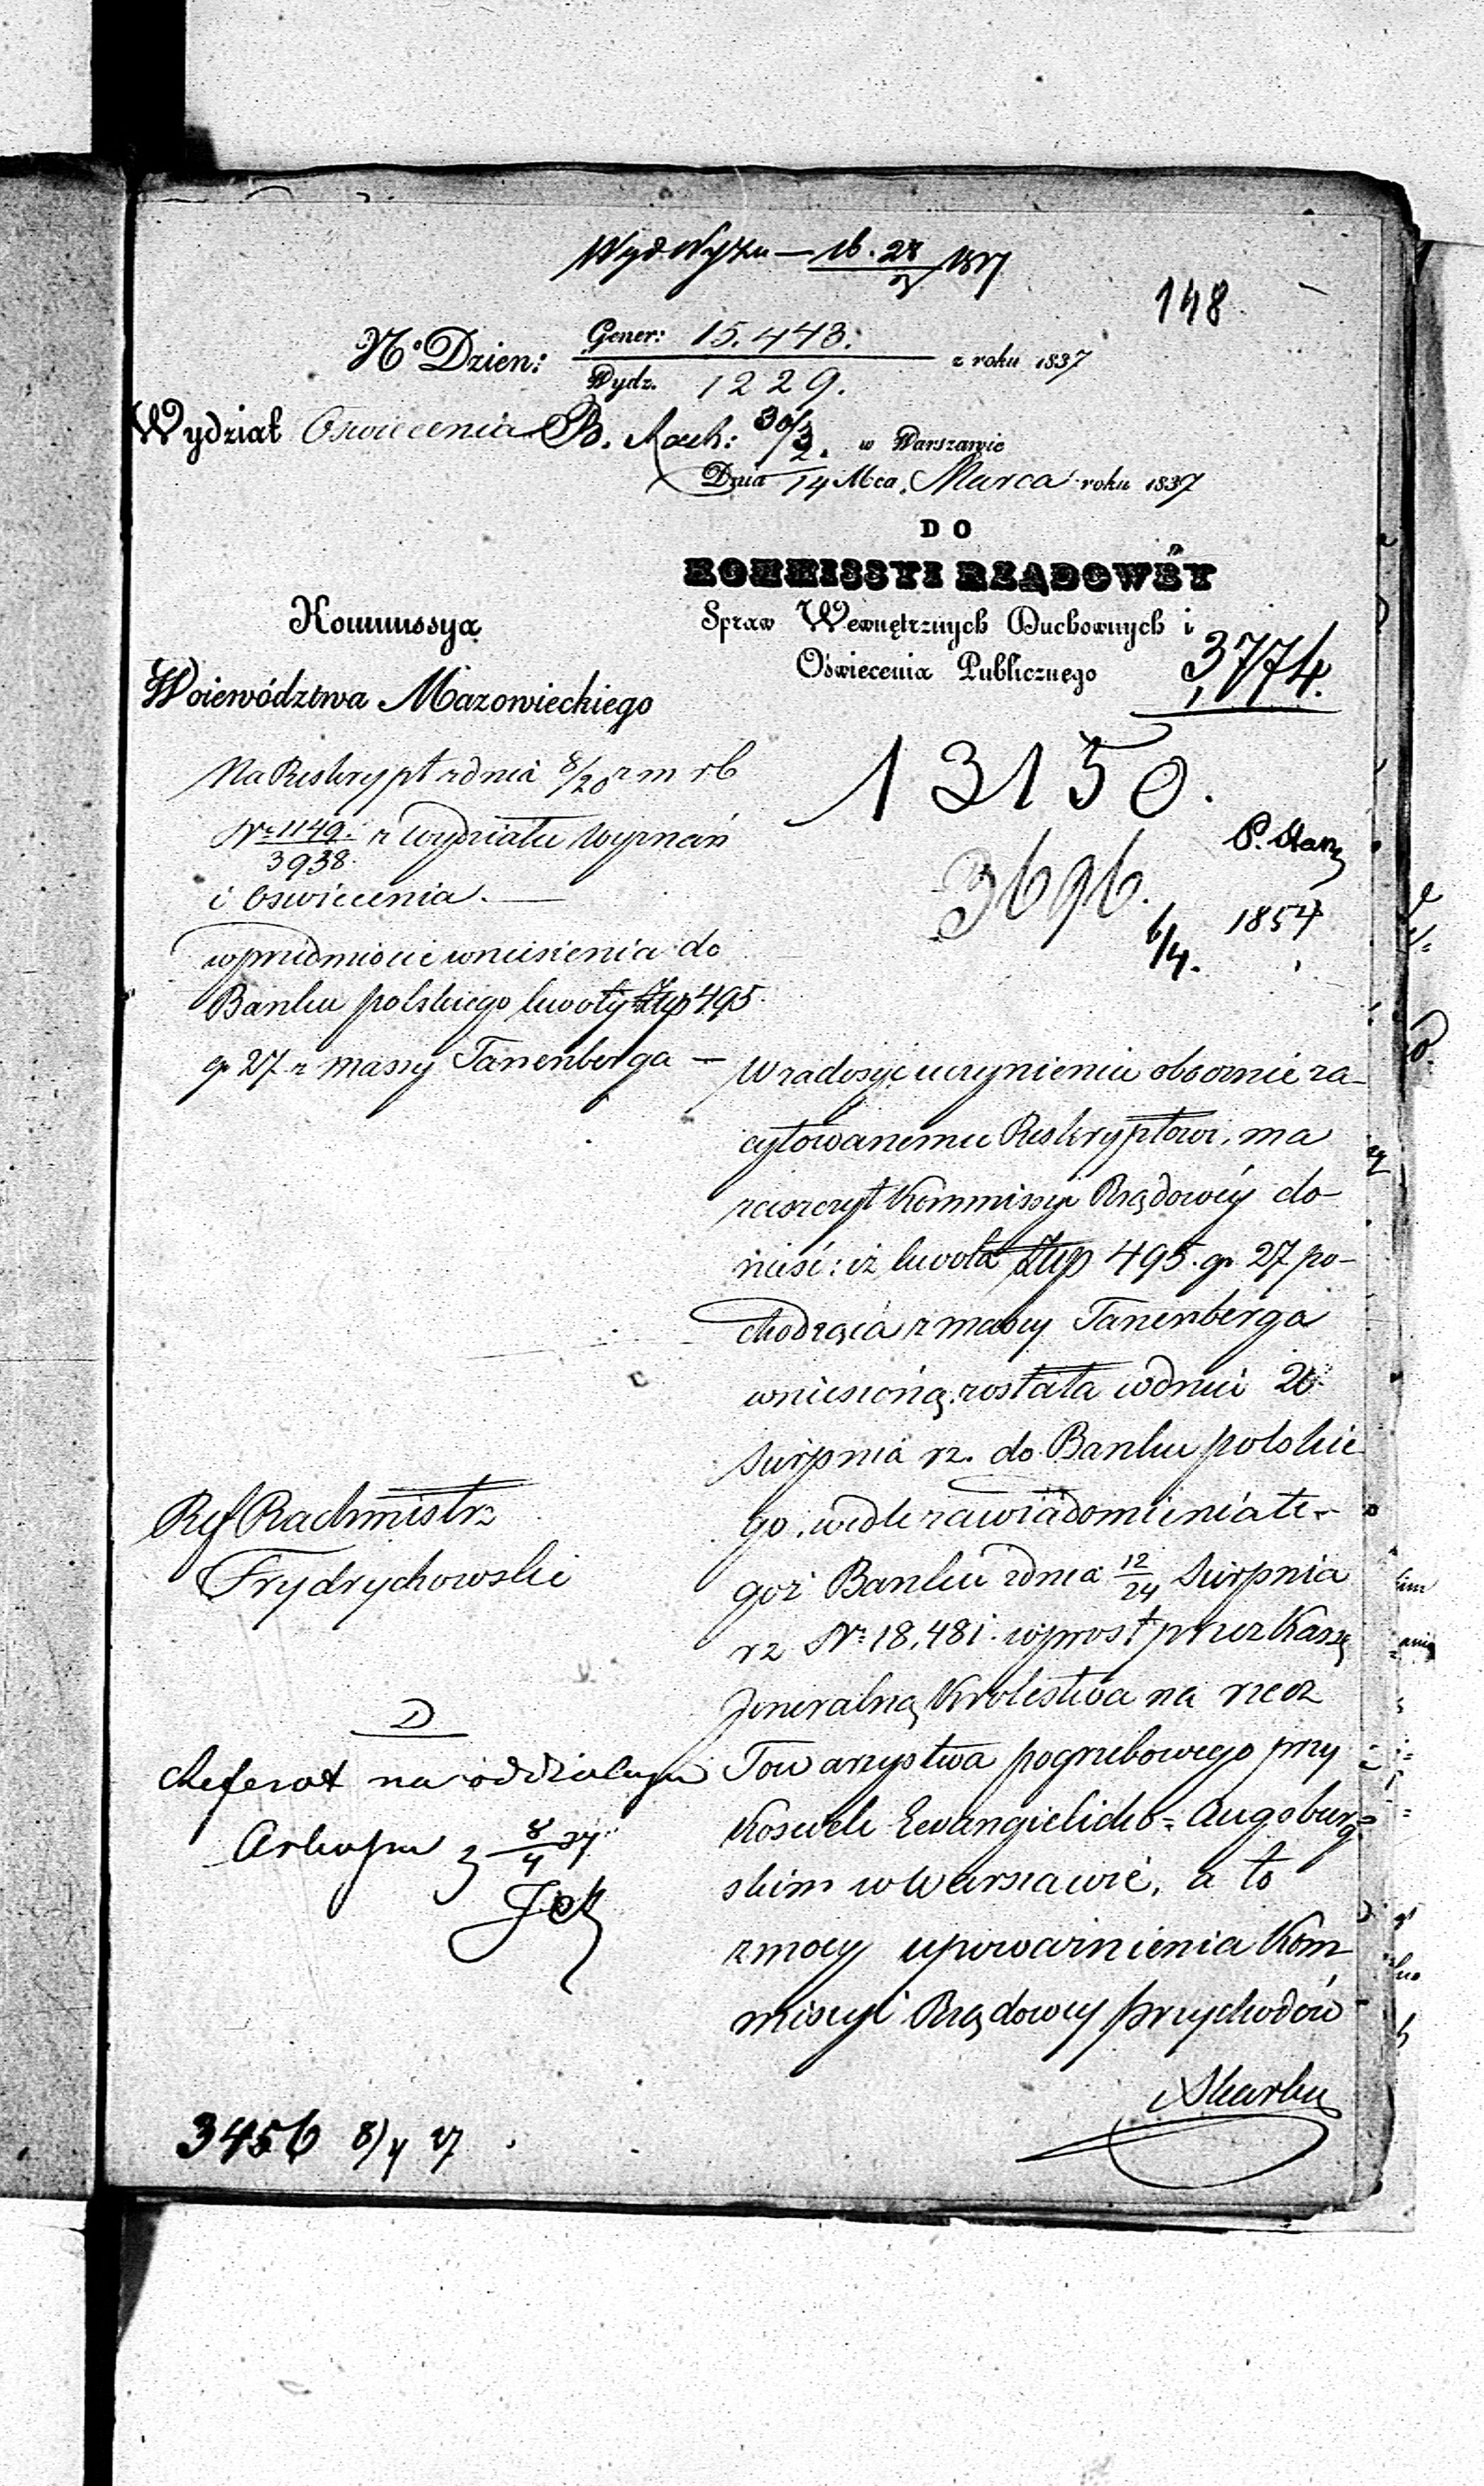 16. 28 / 3
148
No Dzien: Gener: 15.443. / Wydz. 1229. z roku 1837
Wydział Oswiecenia B. Rach: 30/3 w Warszawie
Dnia 14 Mca Marca roku 1837
DO
KOMMISSYI RZĄDOWÉY
Spraw Wewnętrznych Duchownych i
Oświecenia Publicznego
3774.
Kommissya
Woiewództwa Mazowieckiego
13150.
3696.
6/4.
Na Reskrypt z dnia 8/20 z m rb
No 1149. / 3938. z Wydziału Wyznań
i Oswiecenia. —
w przedmiocie wniesienia do
Banku polskiego kwoty Złp 495
gr 27 z massy Tanenberga —
W zadosyć uczynieniu obocznie za-
cytowanemu Reskryptowi, ma
zaszczyt Kommissyi Rządowéy do-
nieść: iż kwota Złp 495. gr 27 po-
chodząca z massy Tanenberga
wniesioną została w dniu
Sierpnia rz. do Banku polskie
go, wedle zawiadomienia te-
goż Banku z dnia 12/24 Sierpnia
rz No 18,481. wprost przez Kassę
Jeneralną Krolestwa na rzecz
Towarzystwa pogrzebowego przy
Kosciele Ewangielicko=Augsburg=
skim w Warszawie, a to
z mocy upoważnienia Kom
missyi Rządowey przychodów
i Skarbu
Ref Rachmistrz
Frydrychowski
D
Referat na oddzielnym
Arkuszu z 8/4 37
3456 8/4 37